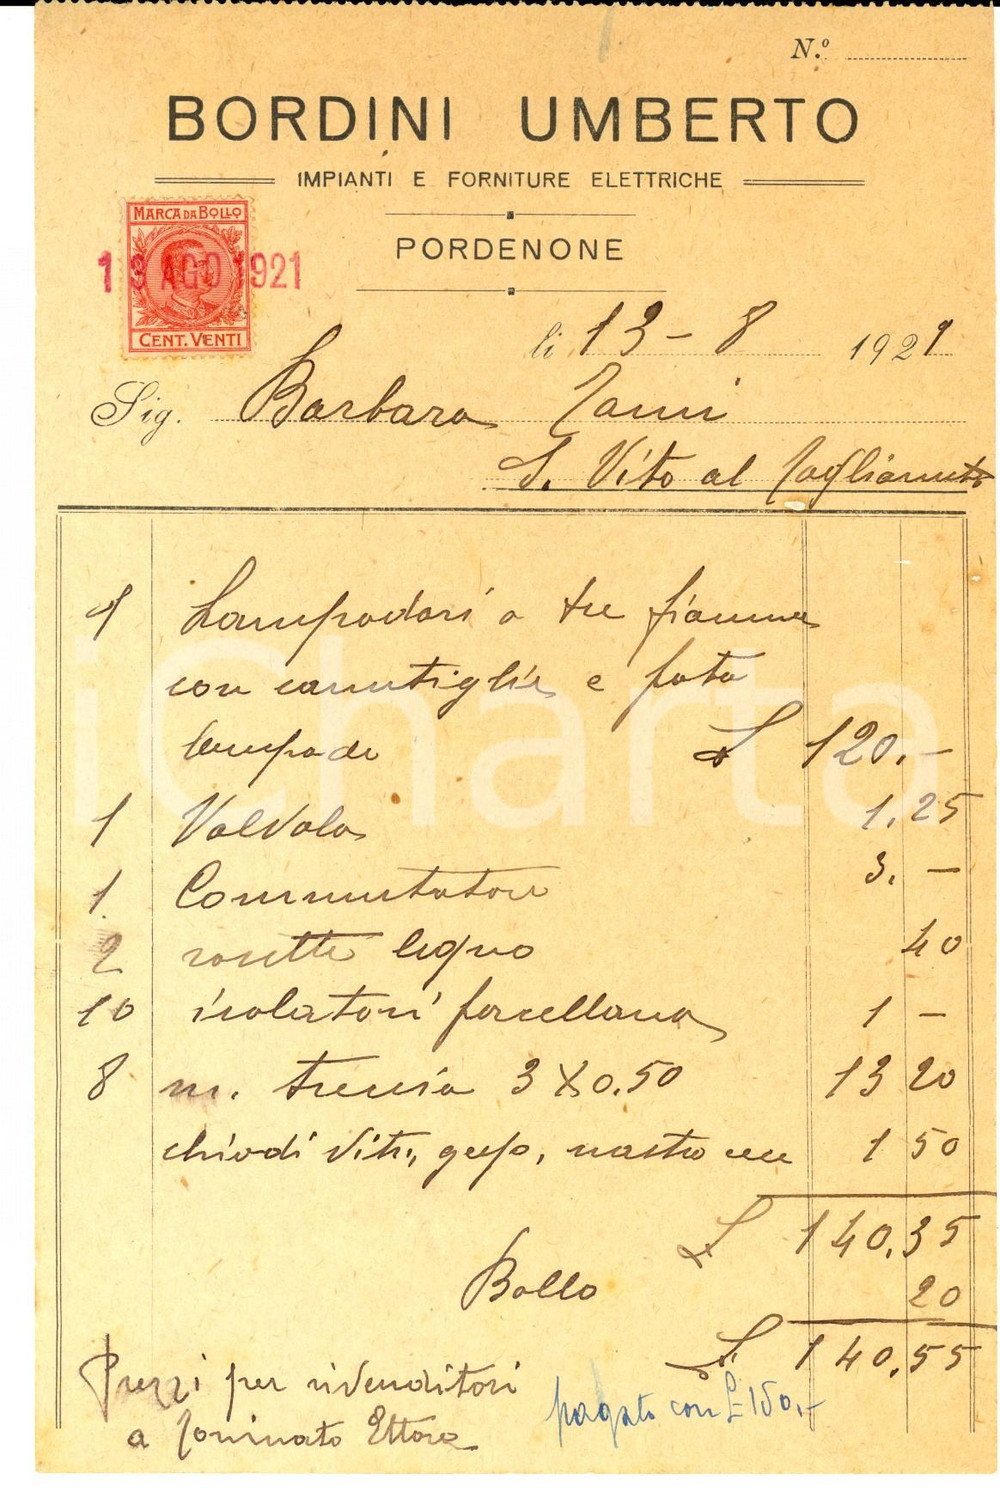 N.º
BORDINI UMBERTO
IMPIANTI E FORNITURE ELETTRICHE
PORDENONE
MARCA DA BOLLO
13 AGO 1921
CENT. VENTI
li 13 - 8 1921
Sig. Barbara Zanni
S. Vito al Tagliamento
1 Lampadari a tre fiamme
con canutiglie e
lampade £ 120.-
1 Valvola 1,25
1 Commutatore 3.-
2 rosette legno 40
10 isolatori porcellana 1 -
8 m. treccia 3 X 0.50 13 20
chiodi viti, gesso, nastro ecc 1 50
£ 140,35
Bollo 20
£ 140,55
Prezzi per rivenditori
a Ettore
pagato con £ 150,-
iCharta